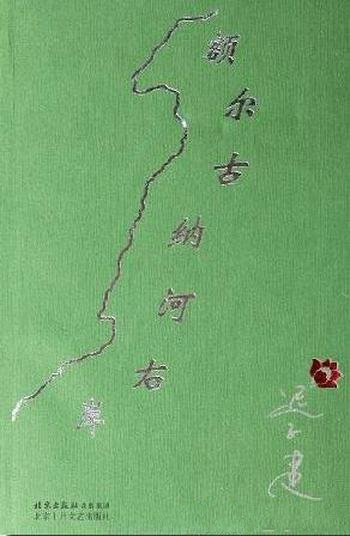 额尔古纳河右岸
迟子建
北京出版社出版集团
北京十月文艺出版社